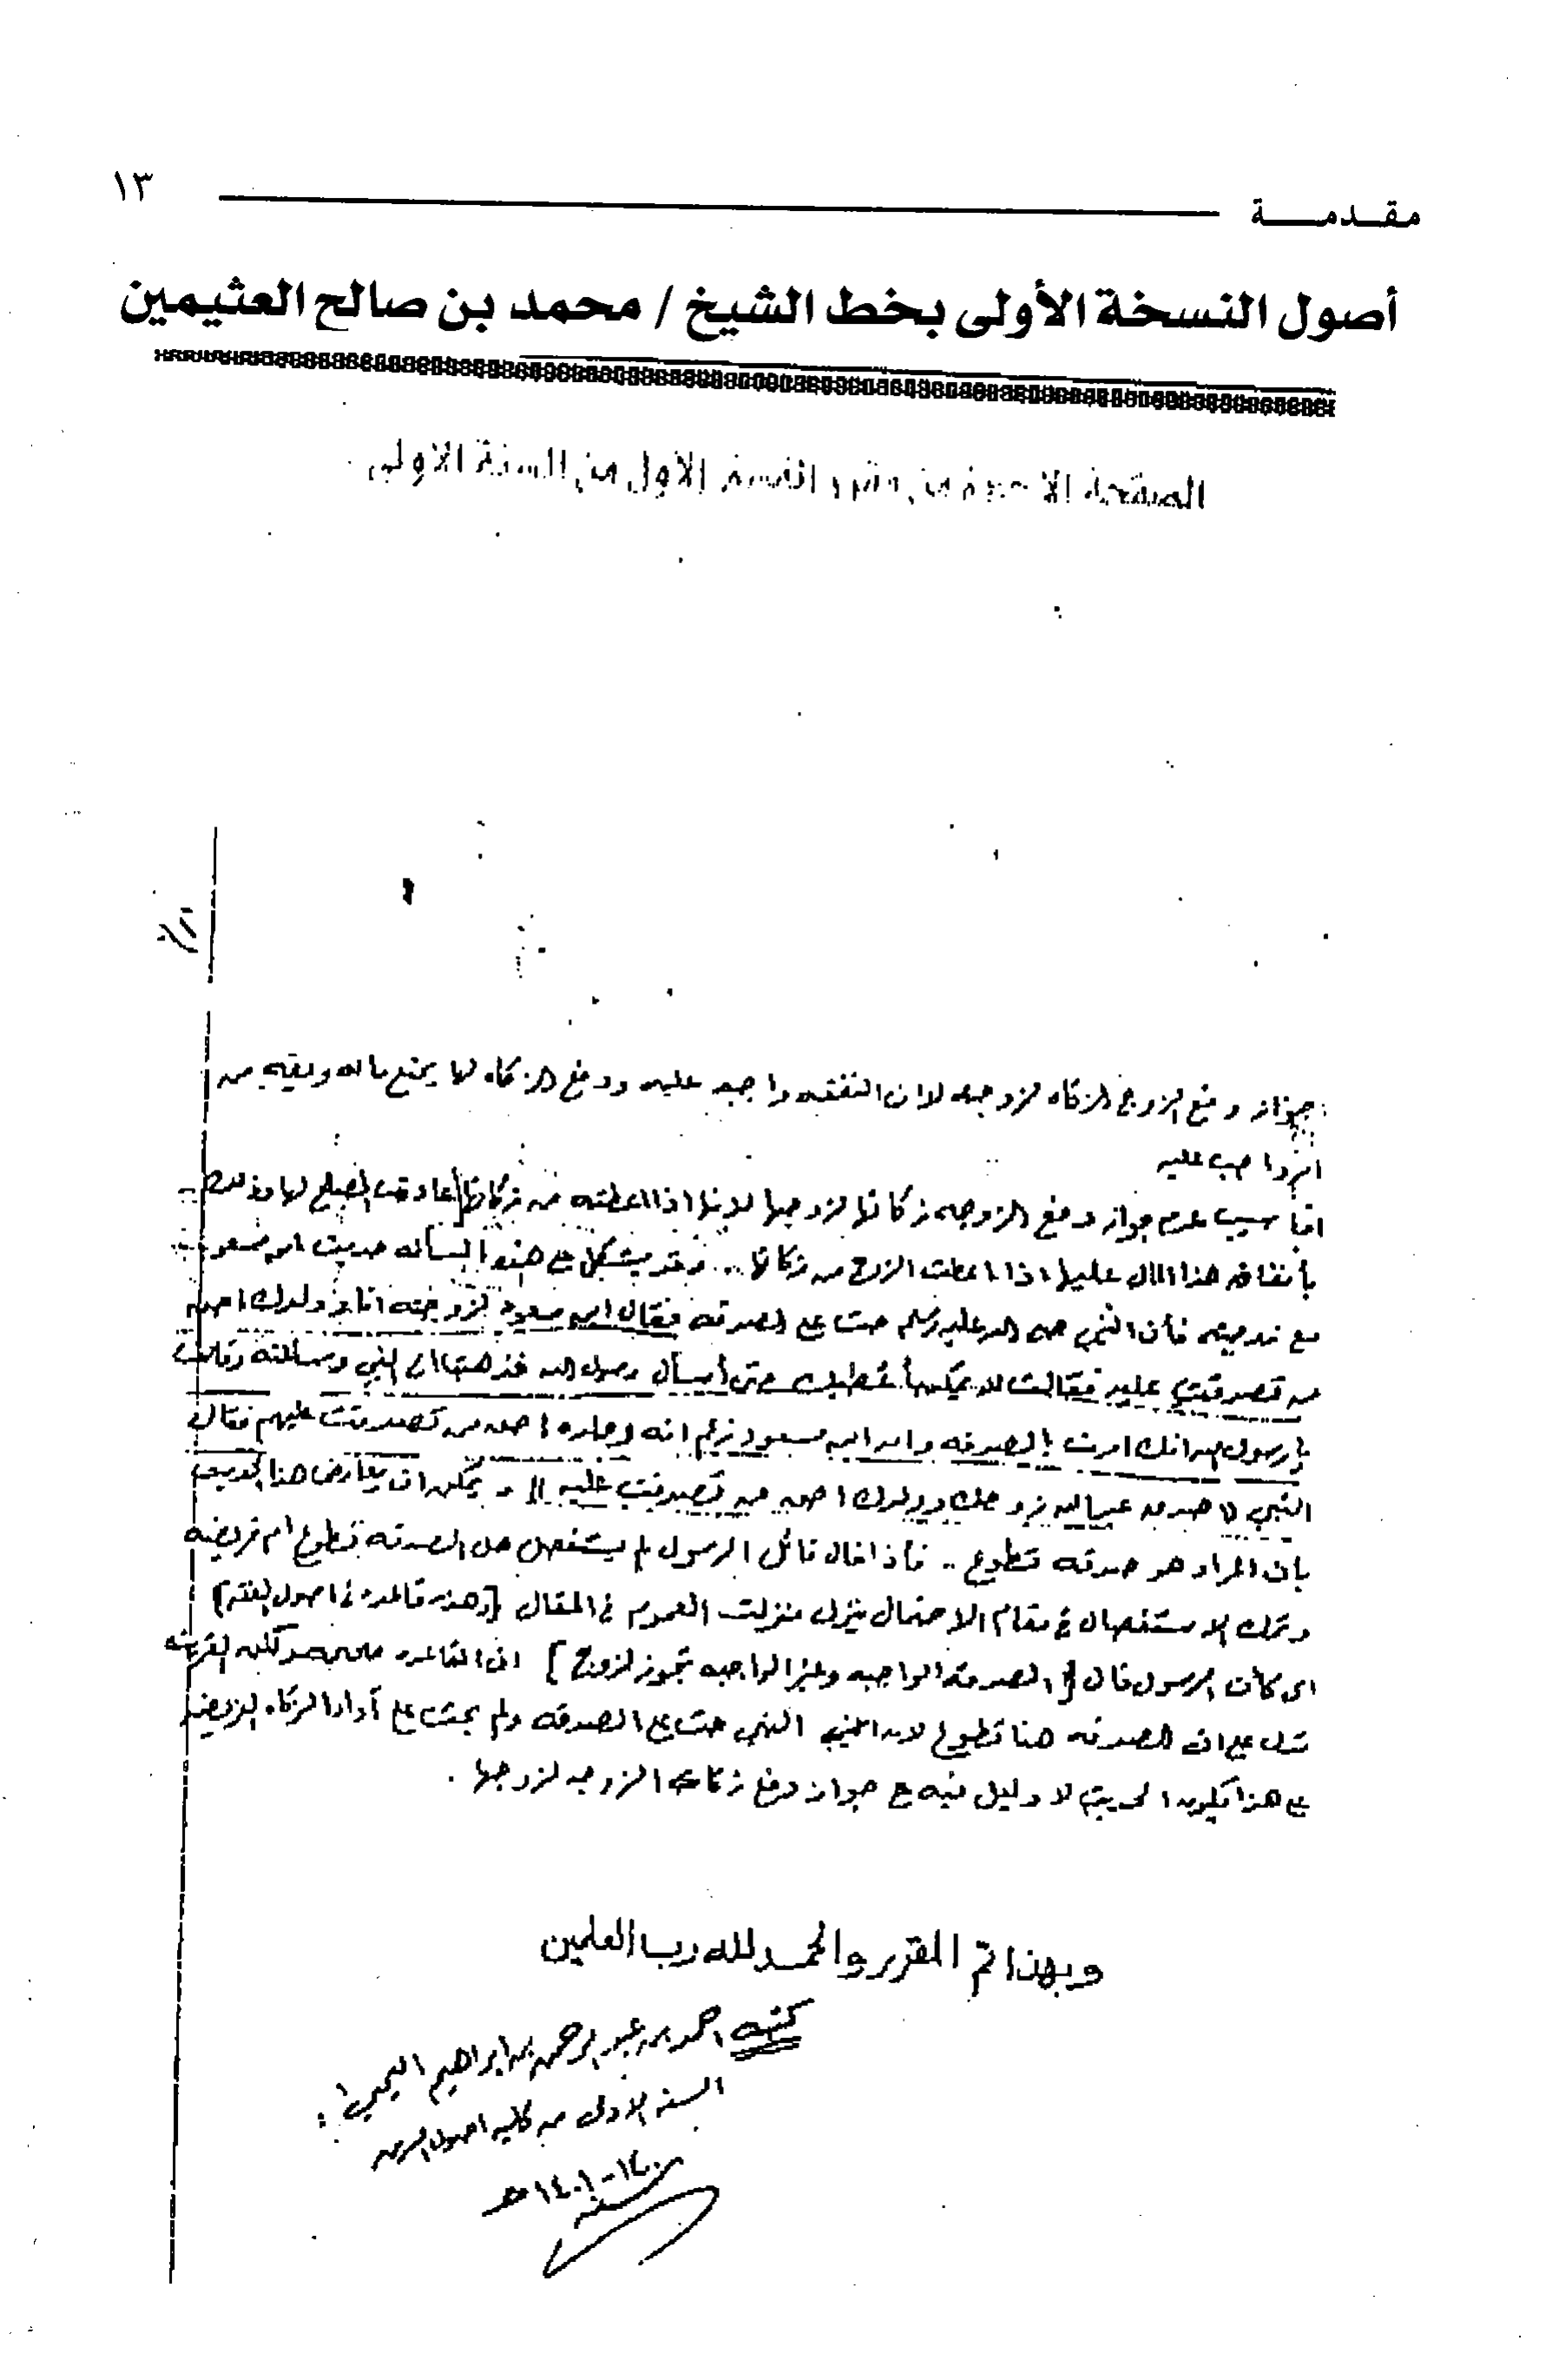 مقدمة ١٣
أصول النسخة الأولى بخط الشيخ / محمد بن صالح العثيمين
الصفحة الأخيرة من مقرر القسم الأول من السنة الأولى
جواز دفع الزوج الزكاه لزوجه لان النفقه واجبه عليه ودفع الزكاه لها يمنع ماله ويقيه من
امر واجب عليه
اما سبب عدم جواز دفع الزوجه زكاتها لزوجها لانها اذا اعطته من زكاتها عادت لها وذلك
بأنفاقه هذا المال عليها اذا اعطت الزوج من زكاتها .. وقد يشكل على هذه المسأله حديث ابن مسعود
مع زوجته فأن النبي صلى الله عليه وسلم حث على الصدقه فقال ابن مسعود لزوجته انا وولدك احق
من تصدقتي عليه فقالت لا يمكن أعطيك حتى أسأل رسول الله فذهبت الى النبي وسألته وقالت
يا رسول الله انك امرت بالصدقه وان ابن مسعود زعم انه وولده احق من تصدقت عليهم فقال
النبي (( صدق عبدالله زوجك وولدك احق من تصدقتي عليه )) ويمكن ان يعارض هذا الحديث
بان المراد هو صدقه تطوع .. فأذا قال قائل الرسول لم يستفصل هل الصدقه تطوع ام فريضه
وترك الاستفصال في مقام الاحتمال ينزل منزلت العموم في المقال [وهذه قاعده في اصول الفقه]
اى كأن الرسول قال [الصدقه الواجبه وغير الواجبه تجوز لزوج] ان القاعده لكن القرينه
تدل على ان الصدقه هنا تطوع لان النبي حث على الصدقه ولم يحث على أداء الزكاه الفريضه
على هذا يكون الحديث لا دليل فيه ع جواز دفع زكاة الزوجه لزوجها .
وبهذا تم المقرر والحمد لله رب العلمين
كتبه احمد بن عبد الرحمن بن ابراهيم
السنه الاولى من كلية اصول الدين
١٤٠٠-١٤٠١ هـ
سنه